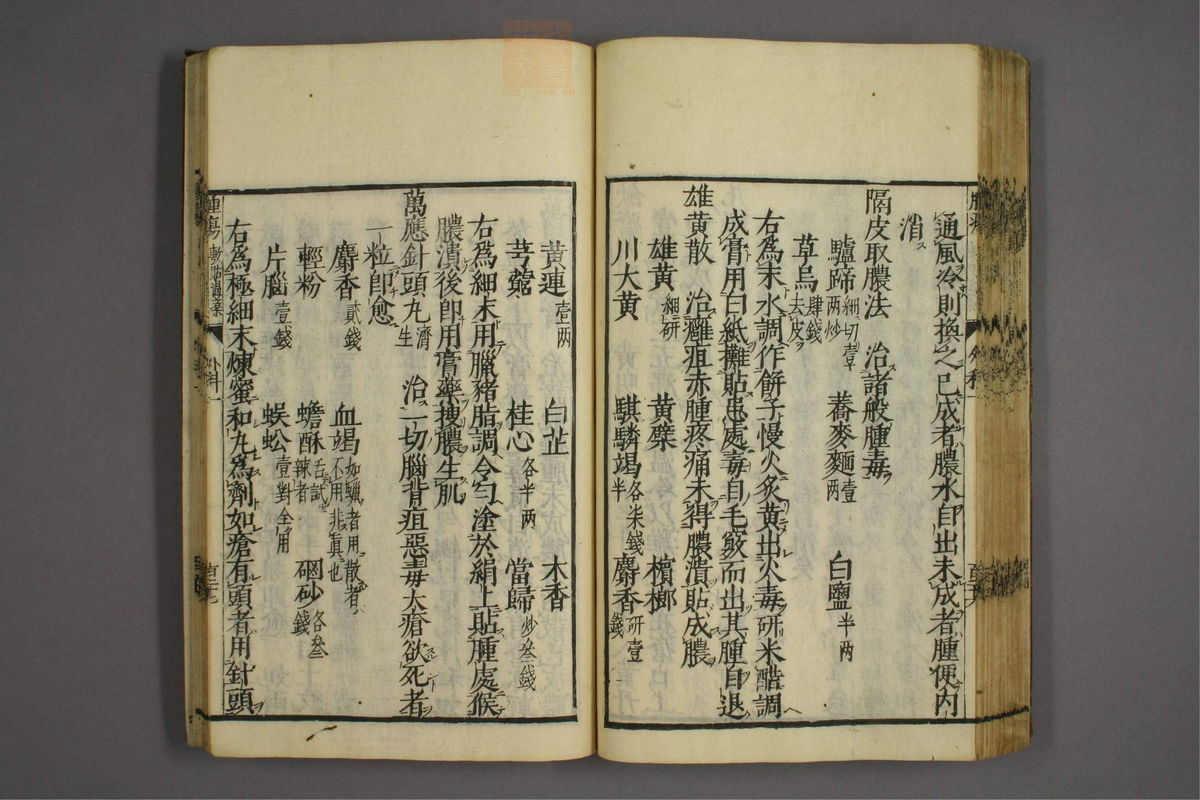 通風冷則換之已成者膿水自出未成者腫便内
消
隔皮取膿法 治諸般腫毒
驢蹄細切壹两炒 蕎麥麵壹两 白鹽半两
草烏肆錢去皮
右為末水調作餅子慢火炙黄出火毒研米醋調
成膏用白紙攤貼患處毒自毛竅而出其腫自退
雄黄散 治癰疽赤腫疼痛未得膿潰貼成膿
雄黄細研 黄蘗 檳榔
川大黄 騏驎竭各柒錢半 麝香研壹錢
黄連壹两 白芷 木香
芎藭 桂心各半两 當歸炒叁錢
右為細末用臘豬脂調令勻塗於絹上貼腫處候
膿潰後卽用膏藥搜膿生肌
萬應針頭丸濟生 治一切腦背疽惡毒大瘡欲死者
一粒卽愈
麝香貳錢 血竭如蠟者用散者不用非真也
輕粉 蟾酥舌試辣者 硇砂各叁錢
片腦壹錢 蜈蚣壹對全用
右為極細末煉蜜和丸為劑如瘡有頭者用針頭
外科一